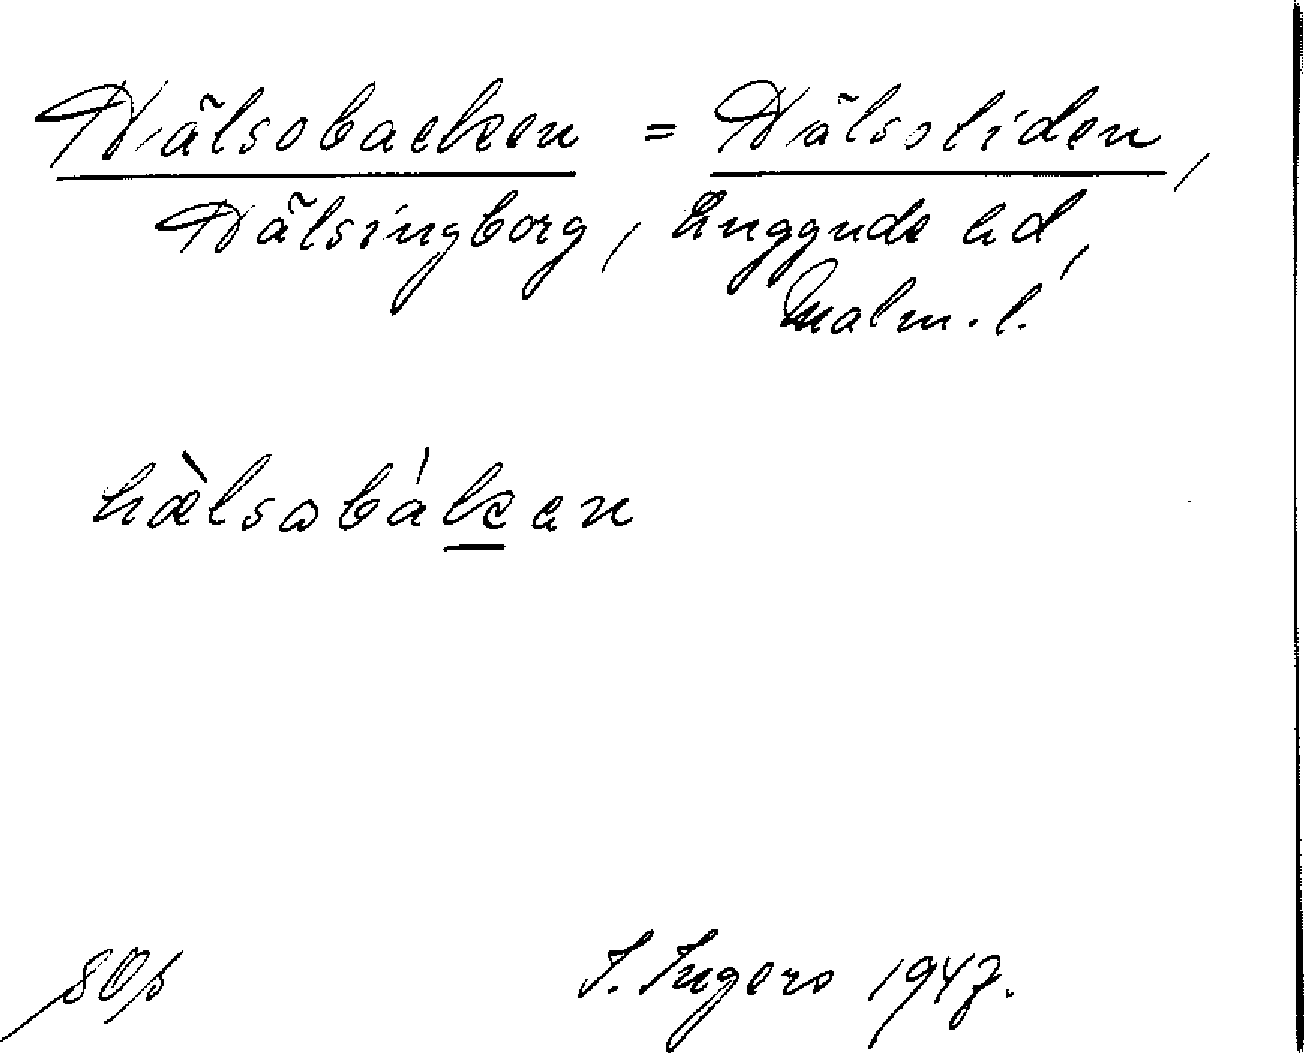 Hälsobacken = Hälsoliden,
Hälsingborg, Luggude hd,
Malm. l.
hælsobáken
I. Ingers 1947.